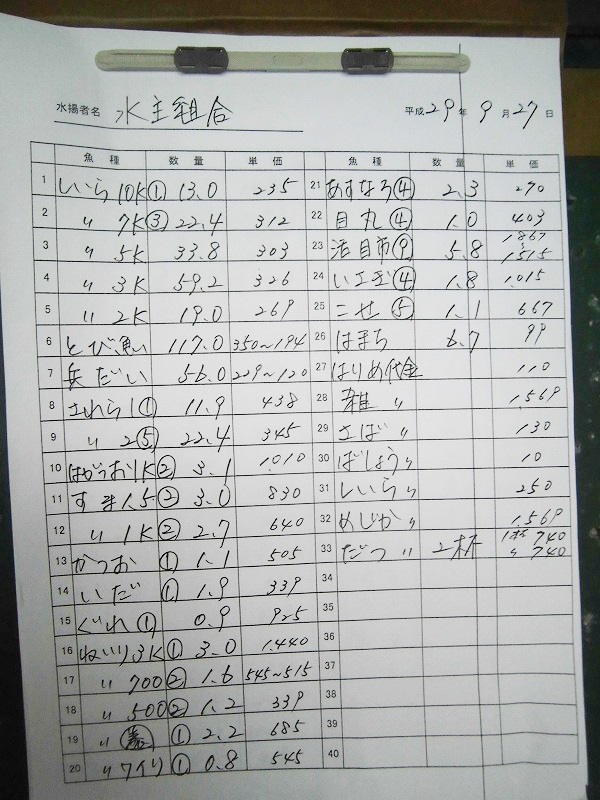 水揚者名 水主組合 平成29年9月27日
魚種 数量 単価 魚種 数量 単価
1 しいら10K① 13.0 235 21 あすなろ④ 2.3 290
2 〃 7K③ 22.4 312 22 目丸④ 1.0 403
3 〃 5K 33.8 303 23 活目市⑨ 5.8 1.867 1.515
4 〃 3K 59.2 326 24 ④ 1.8 1.015
5 〃 2K 19.0 269 25 こせ⑤ 1.1 667
6 とび魚 117.0 350~194 26 はまち 6.7 99
7 兵だい 56.0 229~120 27 はりめ代金 110
8 さわら1① 11.9 438 28 雑〃 1.569
9 〃 2⑤ 22.4 345 29 さば〃 130
10 はがつお1K② 3.1 1.010 30 ばしょう〃 10
11 すま1.5② 3.0 830 31 しいら〃 250
12 〃 1K② 2.7 640 32 めじか〃 1.569
13 かつお① 1.1 505 33 だつ〃 2杯 1杯 740 〃 740
14 いだ① 1.9 339 34
15 ぐれ① 0.9 925 35
16 ねいり3K① 3.0 1.440 36
17 〃 700② 1.6 545~515 37
18 〃 500② 1.2 339 38
19 〃 ① 2.2 685 39
20 〃 ワイリ① 0.8 545 40